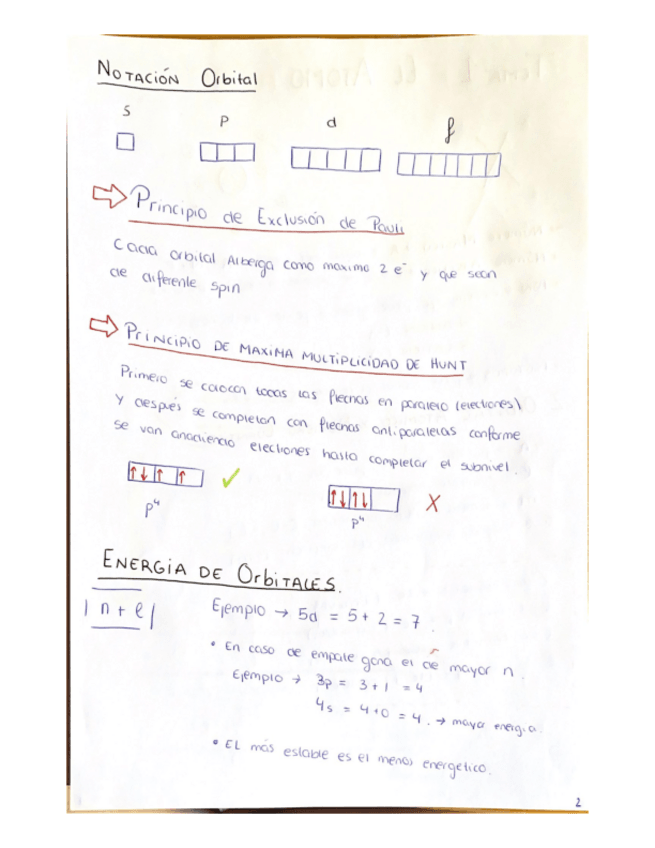 NOTACIÓN Orbital
s p d f
Principio de Exclusión de Pauli
Cada orbital Alberga como maximo 2 e⁻ y que sean
de diferente spin
PRINCIPIO DE MAXIMA MULTIPLICIDAD DE HUNT
Primero se colocan todas las flechas en paralelo (electrones)
y después se completan con flechas antiparalelas conforme
se van anadiendo electrones hasta completar el subnivel.
↑↓ ↑ ↑ ✓ ↑↓ ↑↓ X
p⁴ p⁴
ENERGIA DE ORBITALES.
| n + l | Ejemplo → 5d = 5 + 2 = 7.
• En caso de empate gana el de mayor n.
Ejemplo → 3p = 3 + 1 = 4
4s = 4 + 0 = 4. → mayor energia.
• EL más estable es el menos energético.
2